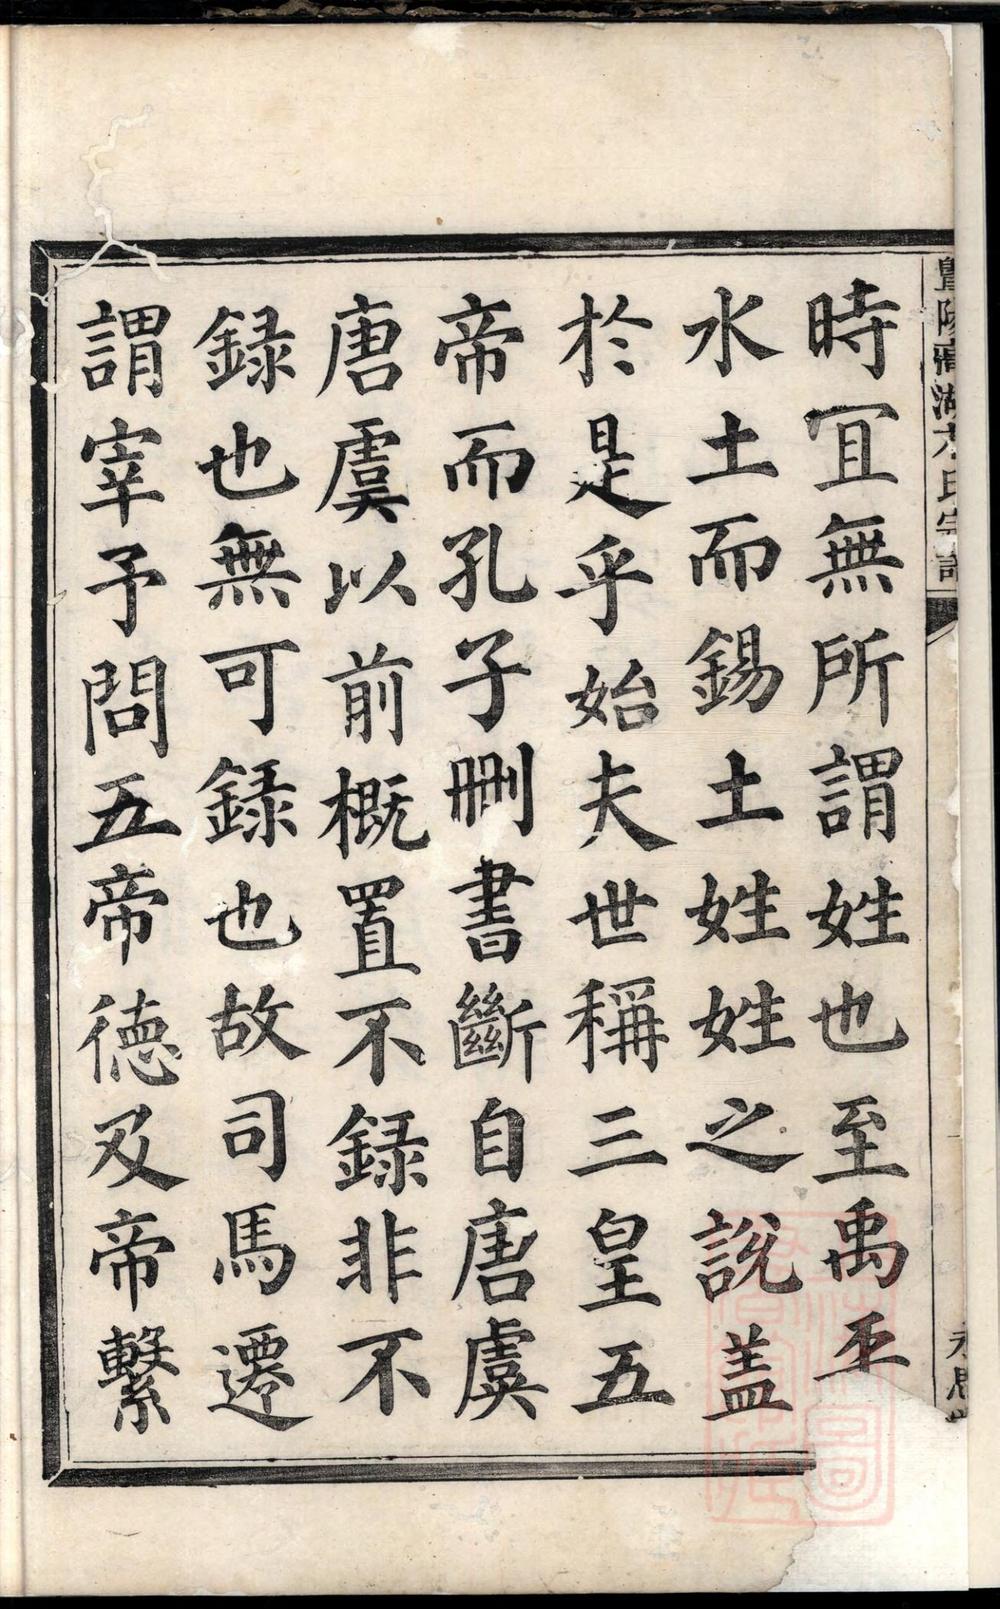 時冝無所謂姓也至禹平
水土而錫土姓姓之說盖
於是乎始夫世稱三皇五
帝而孔子刪書斷自唐虞
唐虞以前概置不録非不
録也無可録也故司馬遷
謂宰予問五帝德及帝繫